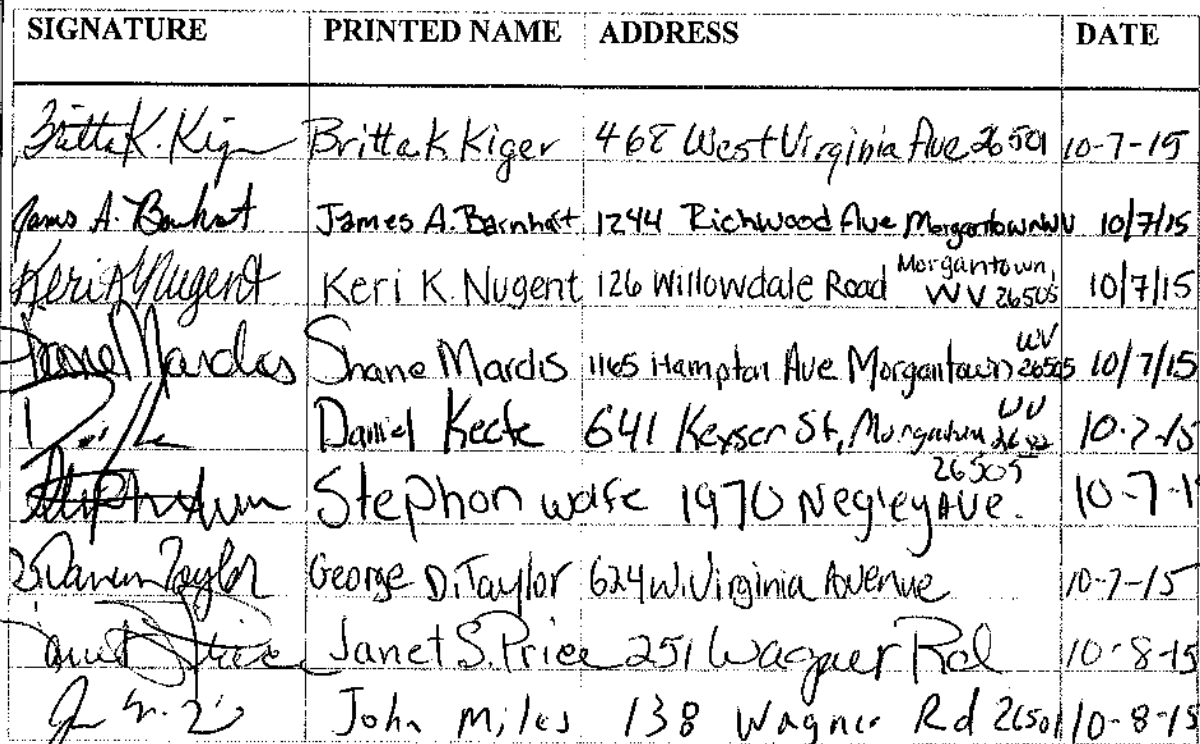 SIGNATURE PRINTED NAME ADDRESS DATE
Britta K. Kiger Britta K. Kiger 468 West Virginia Ave 26501 10-7-15
James A. Barnhart James A. Barnhart 1244 Richwood Ave Morgantown WV 10/7/15
Keri K Nugent Keri K. Nugent 126 Willowdale Road Morgantown, WV 26505 10/7/15
Shane Mardis Shane Mardis 1165 Hampton Ave Morgantown WV 26505 10/7/15
Daniel 641 Keyser St, Morgantown WV 10-7-15
Stephon wolfe 1970 Negley Ave. 26505 10-7-1
Taylor George D. Taylor 624 W. Virginia Avenue 10-7-15
Janet S. Price Janet S. Price 251 Wagner Rd 10-8-15
John Miles 138 Wagner Rd 26501 10-8-15